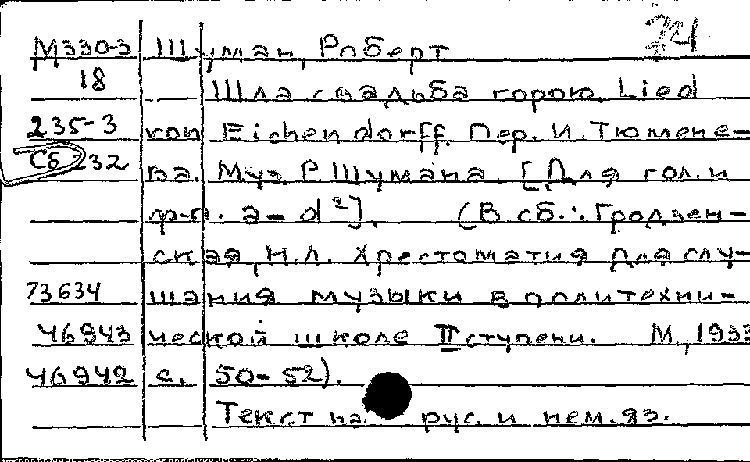 М330-3 Шуман, Роберт 24
18 Шла свадьба горою. Lied
235-3 von Eichendorff. Пер. И. Тюмене-
Сб 232 ва. Муз. Р. Шумана. [Для гол. и
ф-п. a-d²]. (В сб.: Гродзен-
ская, Н.Л. Хрестоматия для слу-
73634 шания музыки в политехни-
46943 ческой школе II ступени. М., 1933
46942 с. 50-52).
Текст на рус. и нем. яз.